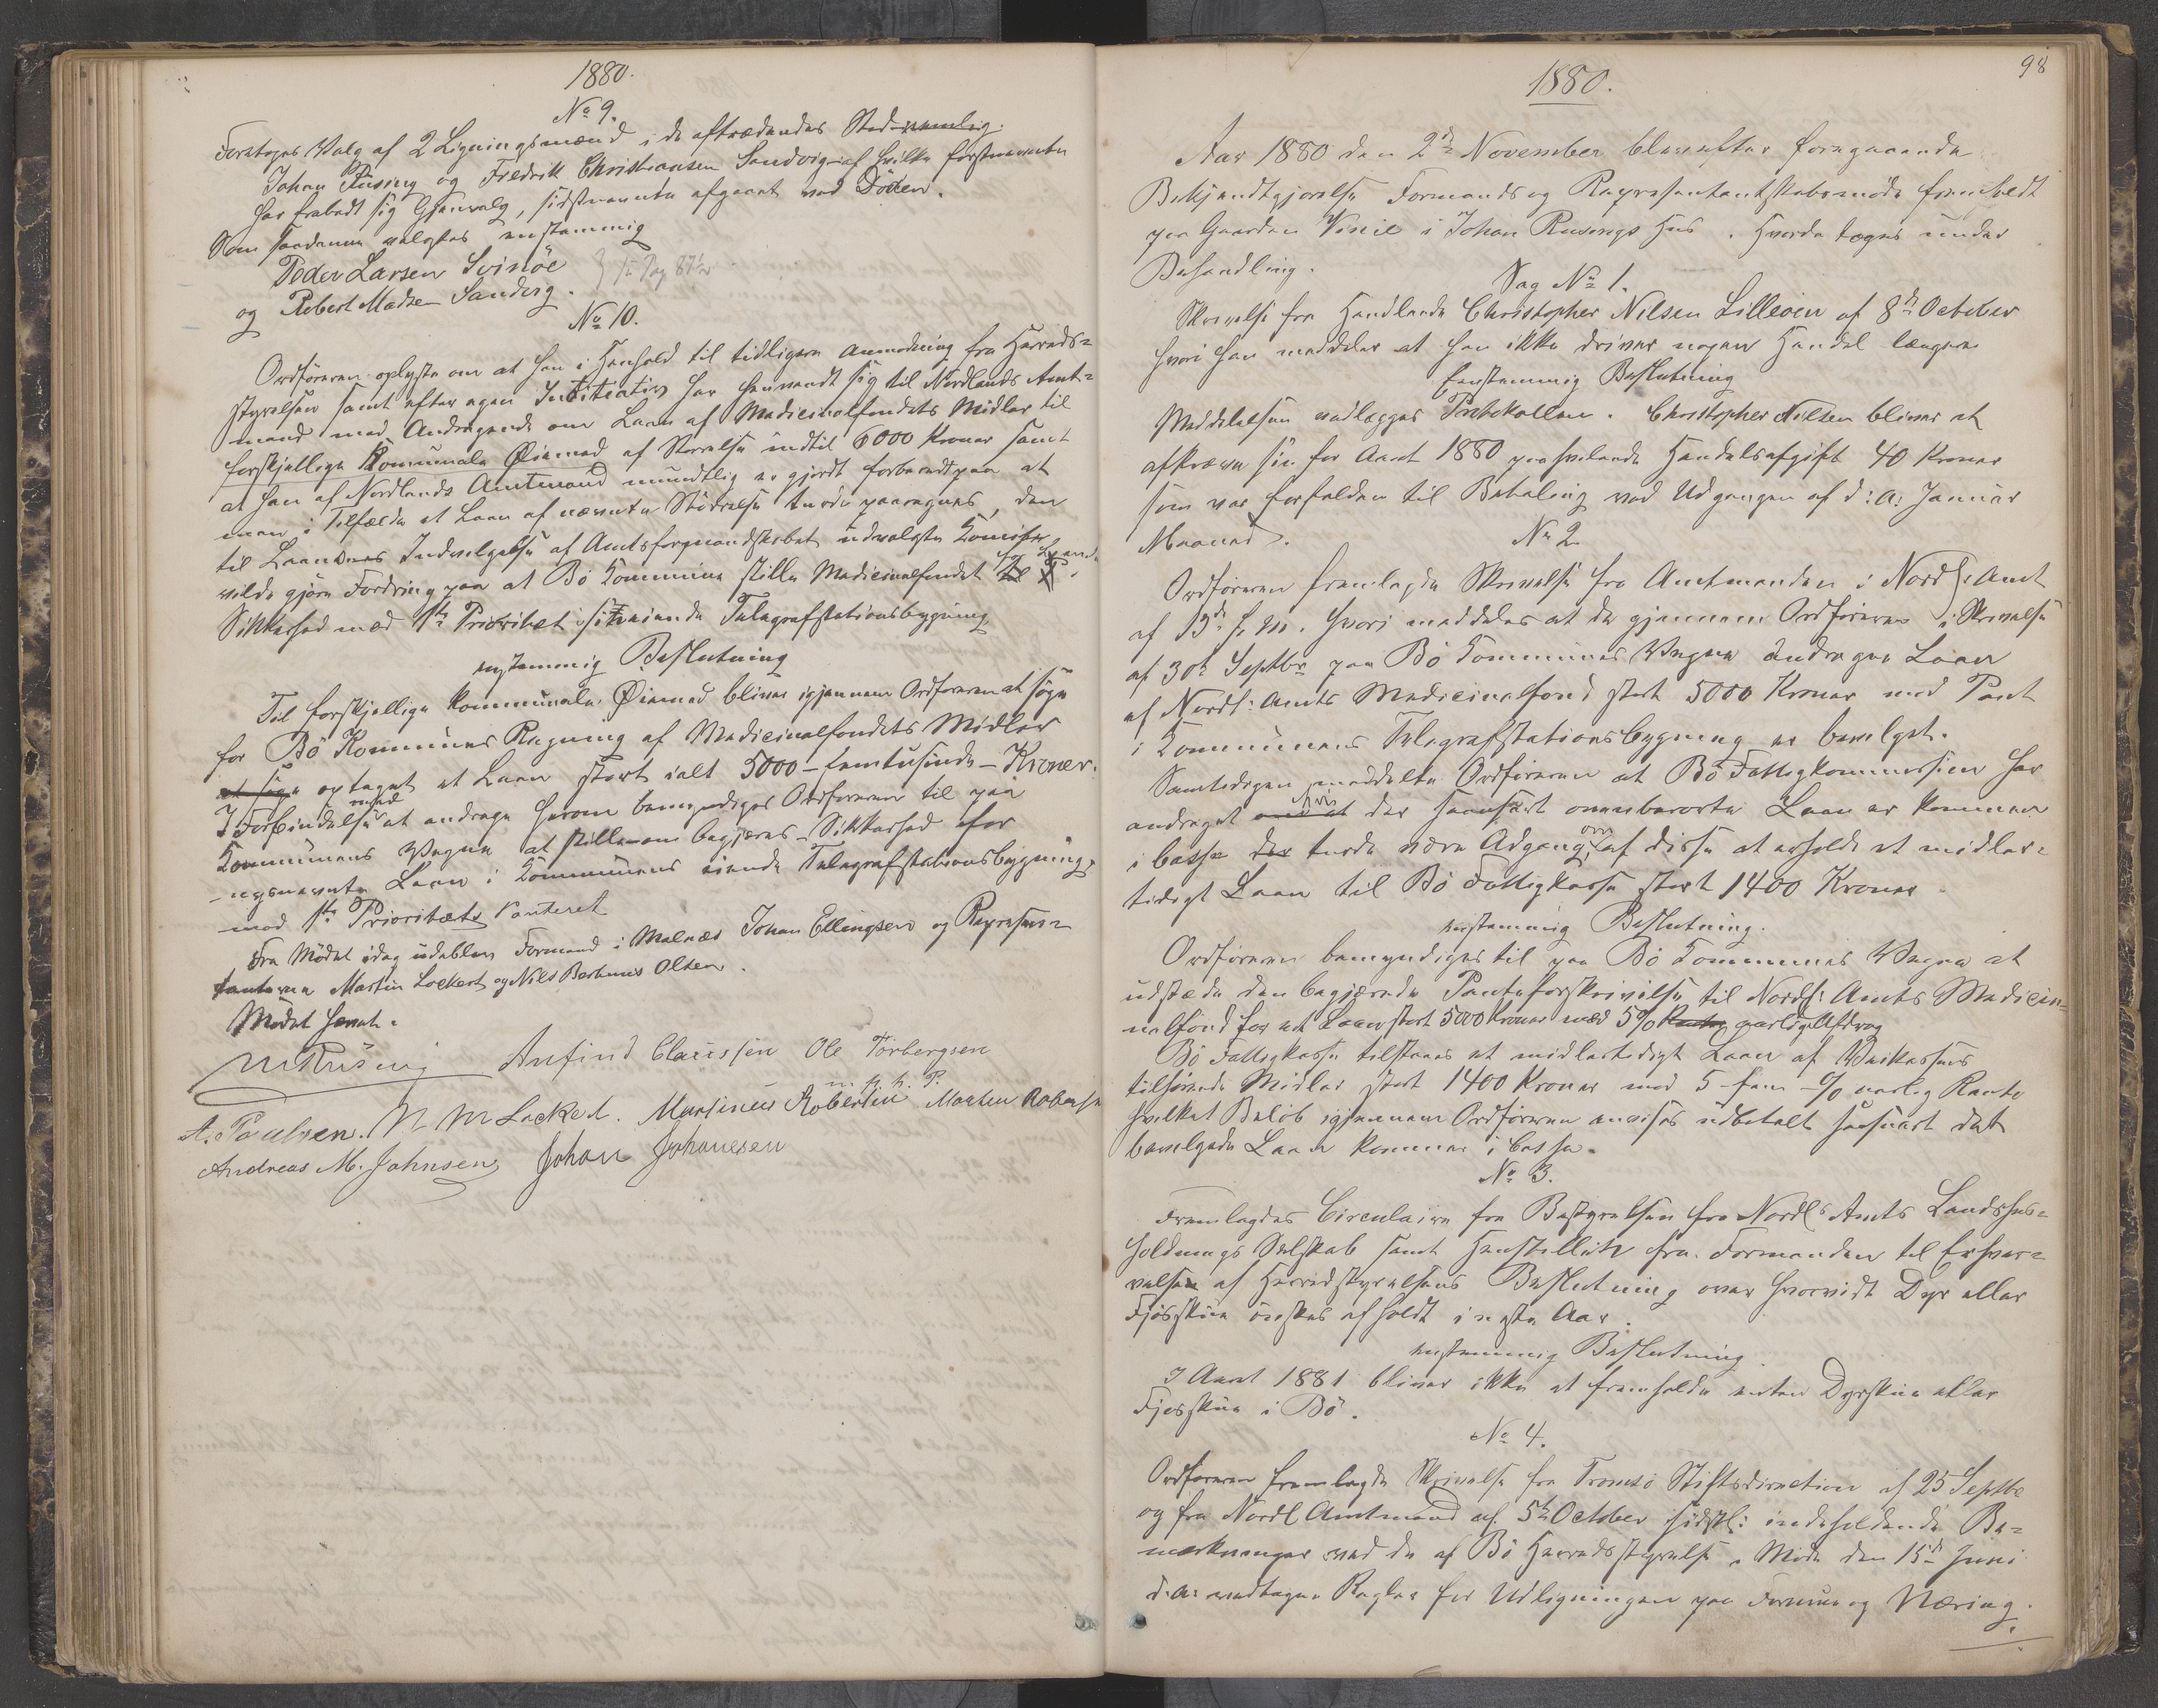 1880.
No 9.
Foretoges Valg af 2 Ligningsmænd i de aftrædendes Sted nemlig
Johan Rusing og Fredrik Christiansen Sandvig af hvilke førstnævnte
har frabedt sig Gjenvalg, sidstnævnte afgaaet ved Døden.
Som saadanne valgtes enstemmig
Peder Larsen Svinöe
og Robert Madsen Sandvig.
No 10.
Ordføreren oplyste om at han i Henhold til tidligere Anmodning fra Herreds=
styrelsen samt efter egen Initiativ har henvendt sig til Nordlands Amt=
mand med Andragende om Laan af Medicinalfondets Midler til
forskjellige Kommunale Øiemed af Størrelse indtil 6000 Kroner samt
at han af Nordlands Amtmand mundtlig er gjordt forberedt paa at
man i Tilfælde et Laan af nævnte Störrelse turde paaregnes, den
til Laanenes Indvilgelse af Amtsformandskabet udvalgte Komite
vilde gjøre Fordring paa at Bö Kommune stille Medicinalfondet
Sikkerhed med 1ste Prioritet i sin eiende Telegrafstationsbygning
enstemmig Beslutning
Til forskjellige kommunale Øiemed bliver igjennem Ordføreren at søge
for Bö Kommunes Regning af Medicinalfondets Midler
at søge optaget et Laan stort ialt 5000 – femtusinde – Kroner.
I Forbindelse med at andrage herom bemyndiges Ordføreren til paa
Kommunens Vegne at stille om begjæres – Sikkerhed for
– nysnævnte Laan i Kommunens eiende Telegrafstationsbygning,
med 1ste Prioritets Panteret
Fra Mödet idag udeblev Formand i Malnæs Johan Ellingsen og Repræsen=
tanterne Martin Lockert og Nils Bertheus Olsen.
Mödet hævet.
M Rusing Anfind Claussen Ole Torbergsen
m. p. h. P.
A. Paulsen. N M Lockert. Martinus Robertsen Morten Robertsen
Andreas M. Johnsen Johan Johanesen
98
1880.
Aar 1880 den 2den November blev efter foregaaende
Bekjendtgjørelse Formands og Repræsentantskabsmøde fremholdt
paa Gaarden Vinie i Johan Rusings Hus. Hvorda toges under
Behandling.
Sag No 1.
Skrivelse fra Handlende Christopher Nilsen Lilleöen af 8de October
hvori han meddeler at han ikke driver nogen Handel længere
Enstemmig Beslutning
Meddelelsen vedlægges Protokollen. Christopher Nilsen bliver at
afkræve sin for Aaret 1880 paahvilende Handelsafgift 40 Kroner
som var forfalden til Betaling ved Udgangen af d: A: Januar
Maaned.
No 2
Ordføreren fremlagde Skrivelse fra Amtmanden i Nordl: Amt
af 13de f. M. hvori meddeles at det gjennem Ordføreren i Skrivelse
af 30te Septbr paa Bö Kommunes Vegne andragne Laan
af Nordl: Amts Medicinalfond stort 5000 Kroner mod Pant
i Kommunens Telegrafstationsbygning er bevilget.
Samtidigen meddelte Ordføreren at Bö Fattigkommission har
andraget om at der saasnart omanberørte Laan er kommen
i Casse der turde være Adgang om af disse at erholde et midler=
tidigt Laan til Bö Fattigkasse stort 1400 Kroner
enstemmig Beslutning.
Ordføreren bemyndiges til paa Bö Kommunes Vegne at
udstede den begjærede Panteforskrivelse til Nordl: Amts Medicin=
nalfond for et Laan stort 5000 Kroner med 5% Rente aarlige Afdrag
Bö Fattigkasse tilstaaes et midlertidigt Laan af Veikassens
tilhørende Midler stort 1400 Kroner med 5 – fem – % aarlig Rente
hvilket Beløb igjennem Ordføreren anvises udbetalt saasnart det
bevilgede Laan kommer i Cassa.
No 3.
Fremlagdes Circulaire fra Bestyrelsen for Nordls Amts Landhus=
holdnings Selskab samt Henstillen fra Formanden til Erhver=
velse af Herredstyrelsens Beslutning over hvorvidt Dyr eller
Fjösskue önskes afholdt i næste Aar.
enstemmig Beslutning
I Aaret 1881 bliver ikke at fremholde enten Dyrskue eller
Fjösskue i Bö.
No 4.
Ordføreren fremlagde Skrivelse fra Tromsö Stiftsdirection af 25 Septbr
og fra Nordl Amtmand af 5te October sidstl: indeholdende Be=
mærkninger ved de af Bö Herredsstyrelse i Møde den 15de Juni
d: A: vedtagne Regler for Udligningen paa Formue og Næring.